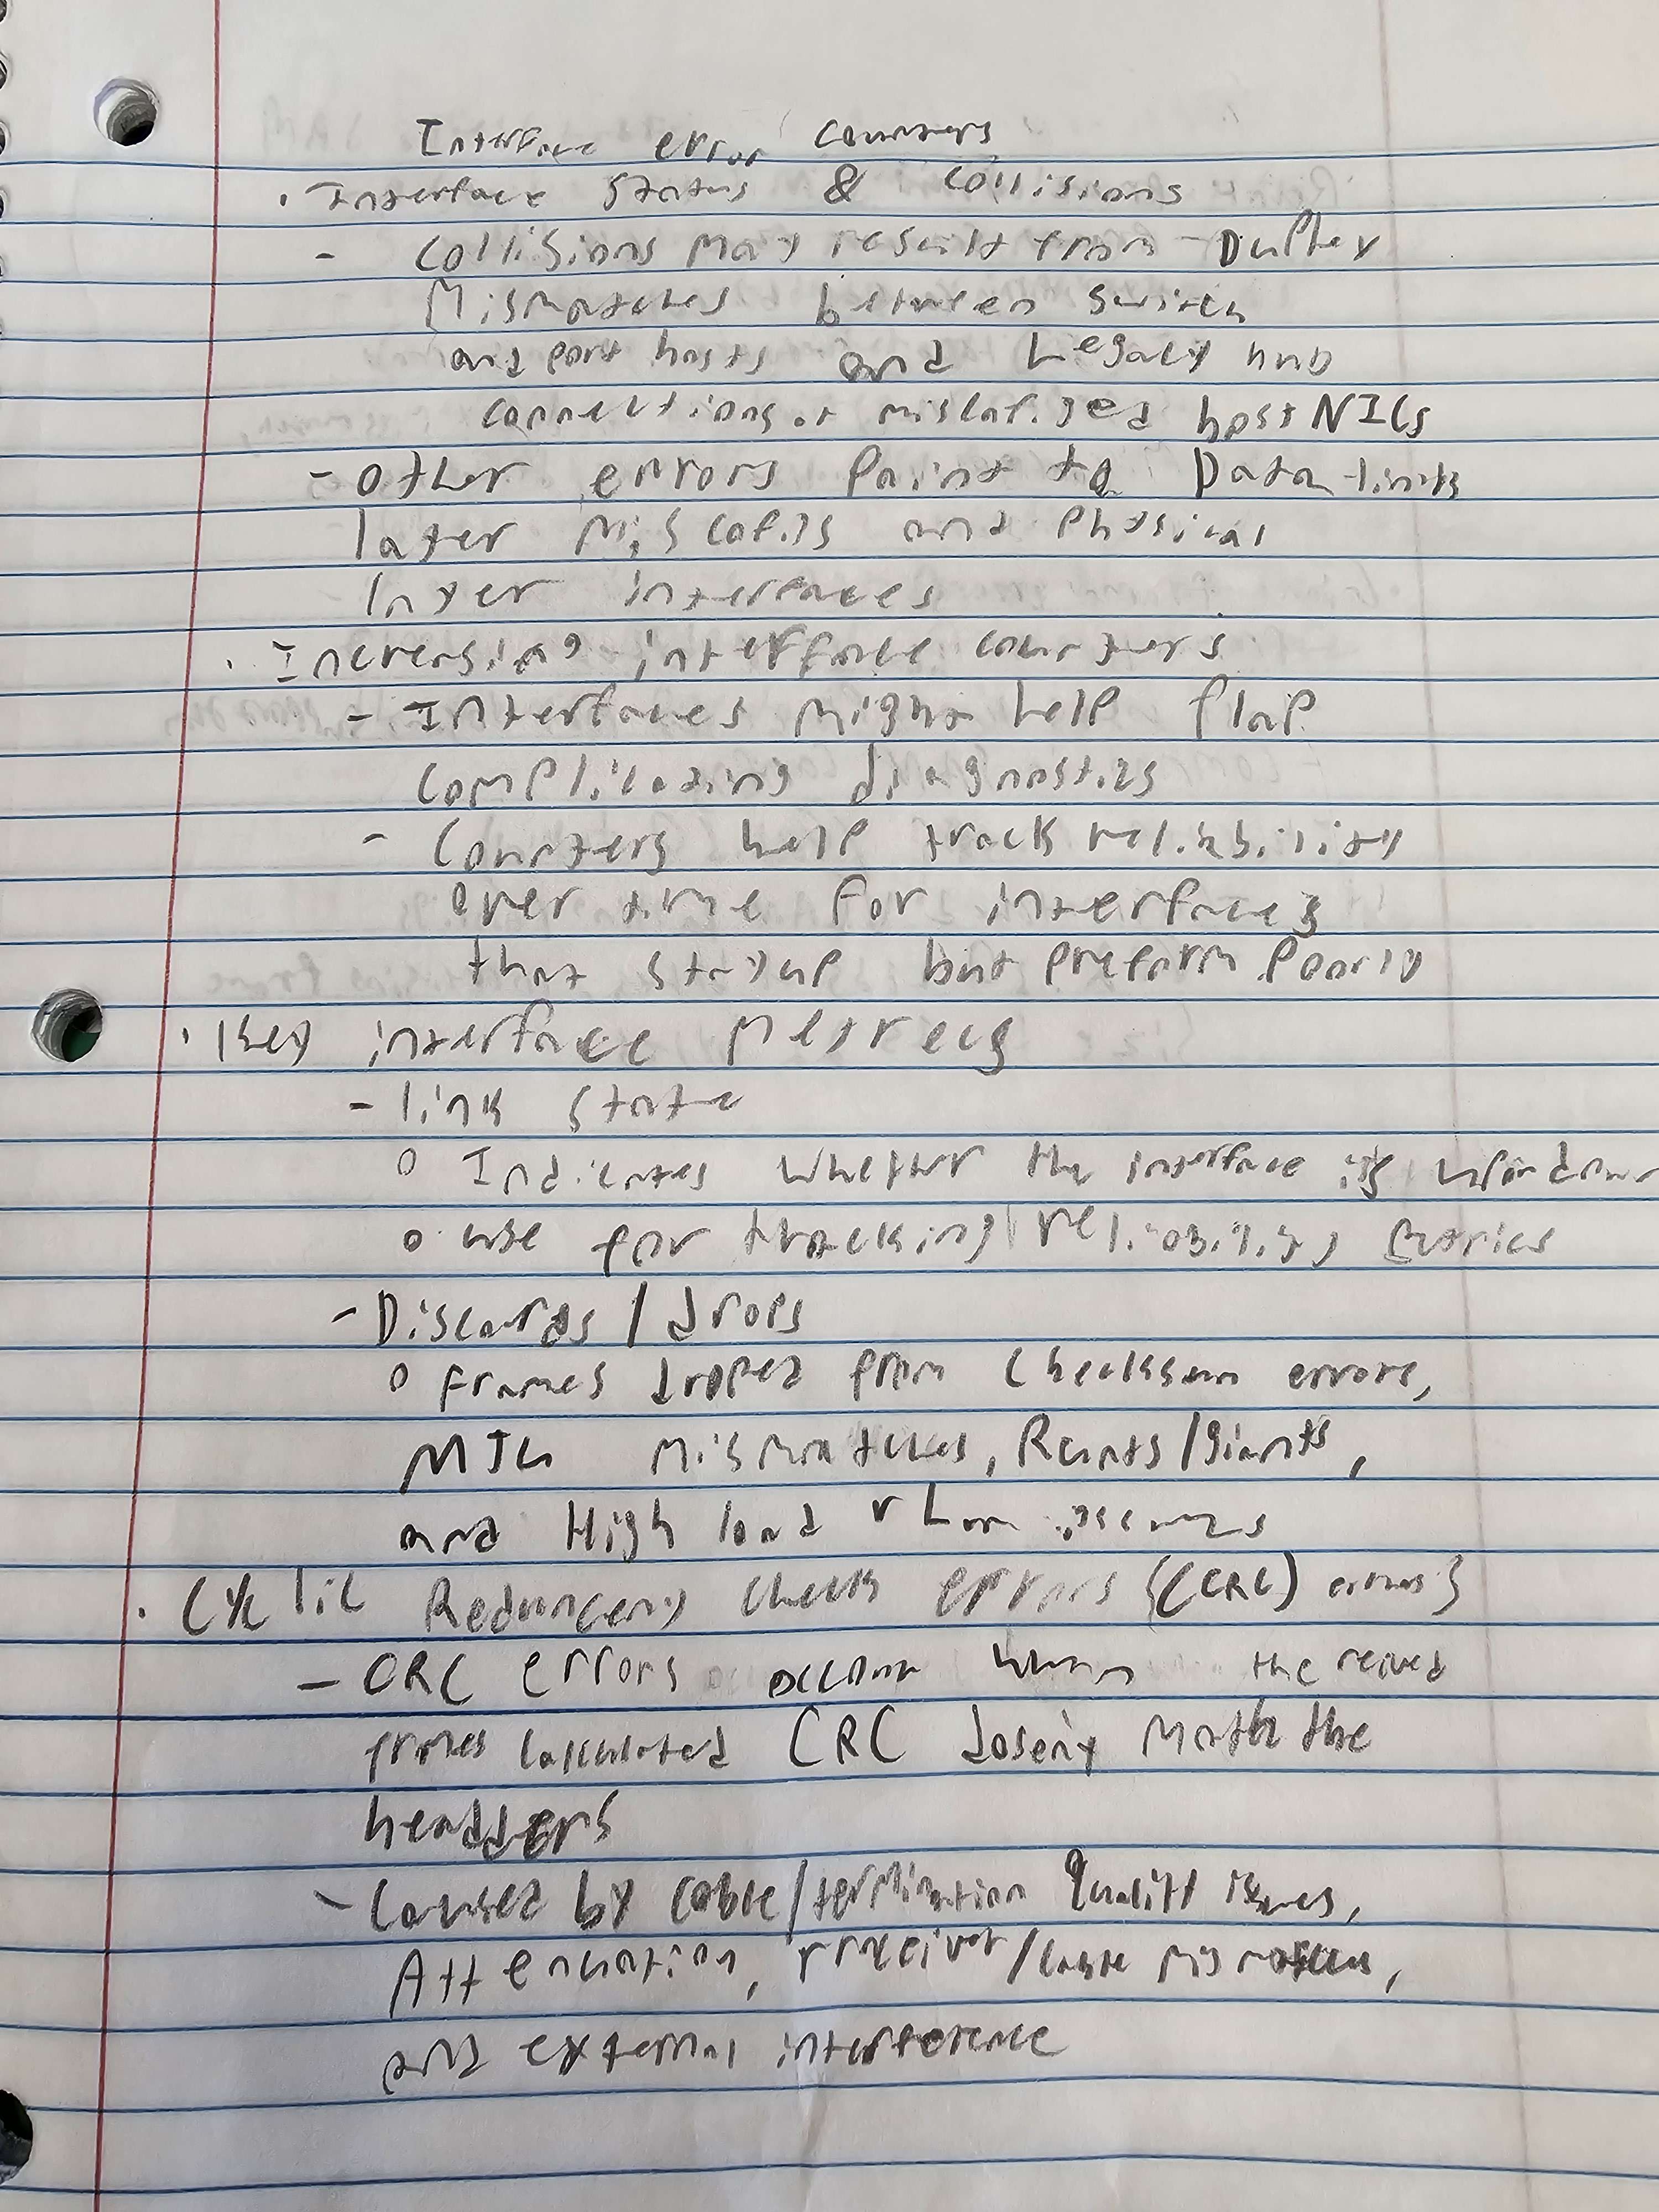 Interface error counters
· Interface Status & Collisions
- Collisions may result from Duplex
Mismatches between switch
and port hosts and Legacy hub
connections or host NICs
- other errors Point to Data-link
layer and Physical
layer interfaces
· Increasing interface counters
- Interfaces might help flap
complicating diagnostics
- Counters help track reliability
over time for interfaces
that stay up but preform Poorly
· Key interface Metrecs
- link state
o Indicates whether the interface is up or down
o use for tracking reliability metrics
- Discards / drops
o frames droped from Checksum errors,
MTU mismatches, Runts/giants,
and High load
· Cyclic Redunceny check errors {(CRC) errors}
- CRC errors when the
frames calculated CRC match the
headders
- Caused by cable/termination Quality issues,
Attenuation, /cable mismatches,
and external interference